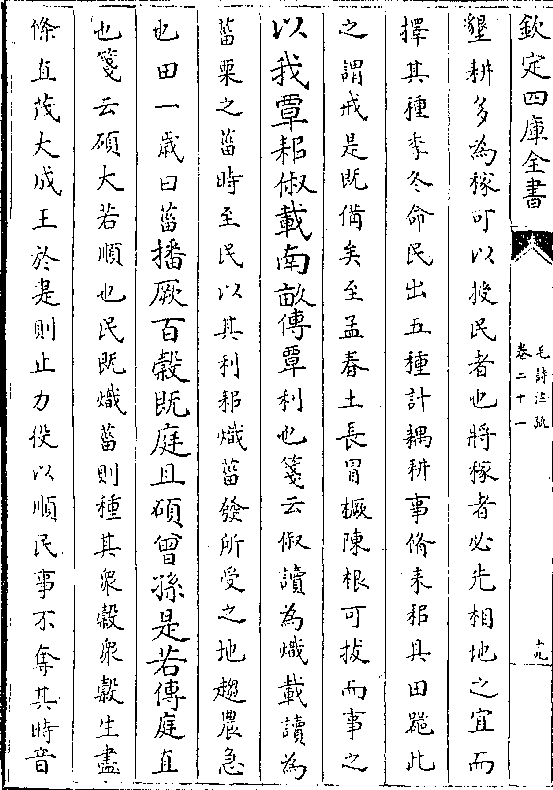 欽定四庫全書
毛詩注疏
卷二十一
十九
墾耕多為稼可以授民者也將稼者必先相地之宜而
擇其種季冬命民出五種計耦耕事脩耒耜具田器此
之謂戒是既備矣至孟春土長冒橛陳根可拔而事之
以我覃耜俶載南畝傳覃利也箋云俶讀為熾載讀為
菑栗之菑時至民以其利耜熾菑發所受之地趨農急
也田一歲曰菑播厥百穀既庭且碩曾孫是若傳庭直
也箋云碩大若順也民既熾菑則種其衆穀衆穀生盡
條直茂大成王於是則止力役以順民事不奪其時音